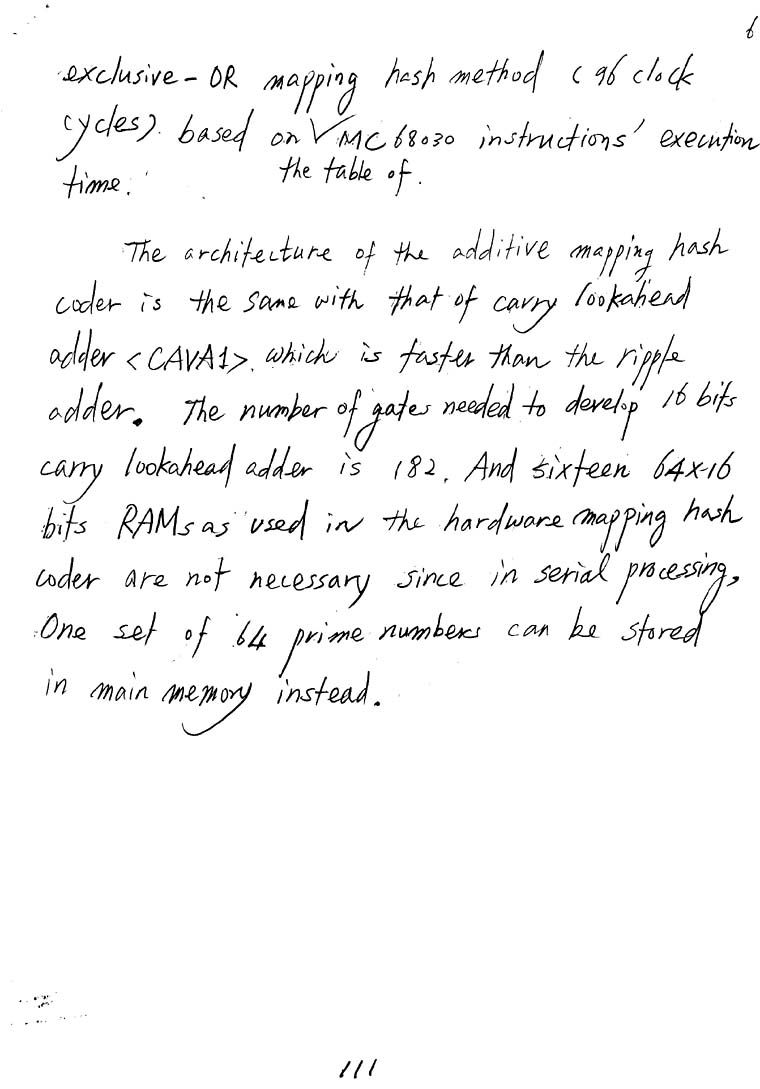 6
exclusive-OR mapping hash method (96 clock
cycles). based on √ MC68030 instructions' execution
time. the table of.
The architecture of the additive mapping hash
coder is the same with that of carry lookahead
adder <CAVA1>. which is faster than the ripple
adder. The number of gates needed to develop 16 bits
carry lookahead adder is 182. And sixteen 64x16
bits RAMs as used in the hardware mapping hash
coder are not necessary since in serial processing,
One set of 64 prime numbers can be stored
in main memory instead.
111